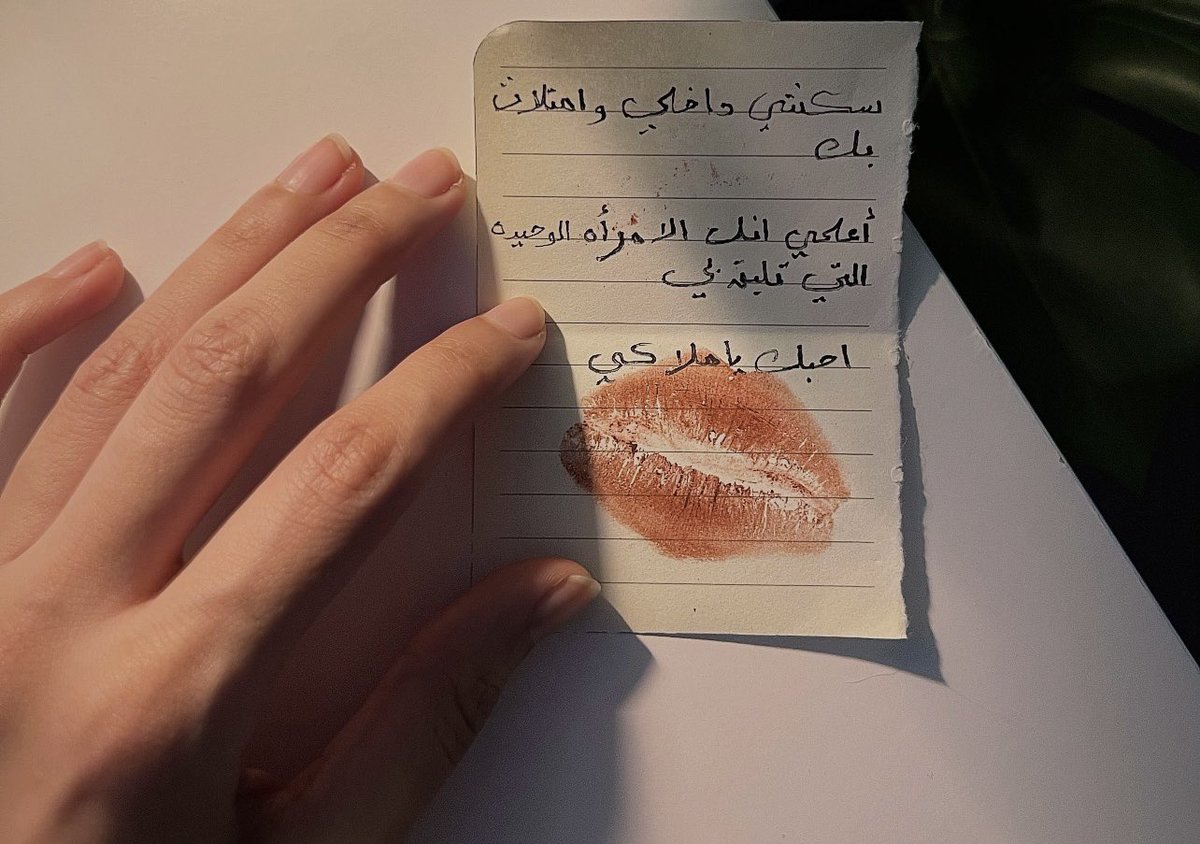 سكنتي داخلي وامتلات
بك
أعلمي انك الامرأه الوحيده
التي تليق بي
احبك ياملاكي